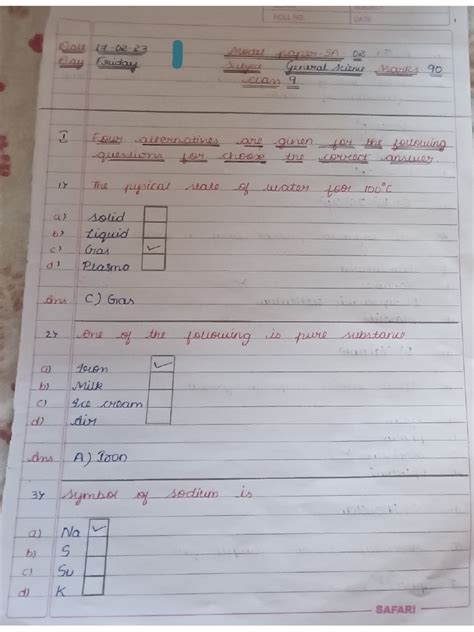 ROLL NO.
DATE
Date 17-02-23 Model paper-SA 02
Day Friday Subject General Sciene Marks 90
class 9
I Four alternatives are given for the following
questions for choose the correct answer.
1) The pysical state of water foor 100°C
a) Solid
b) Liquid
c) Gas ✓
d) Plasma
Ans C.) Gas
2) One of the following is pure substance
a) Iron ✓
b) Milk
c) Ice cream
d) Air
Ans A) Iron
3) Symbol of sodium is
a) Na ✓
b) S
c) Su
d) K
SAFARI